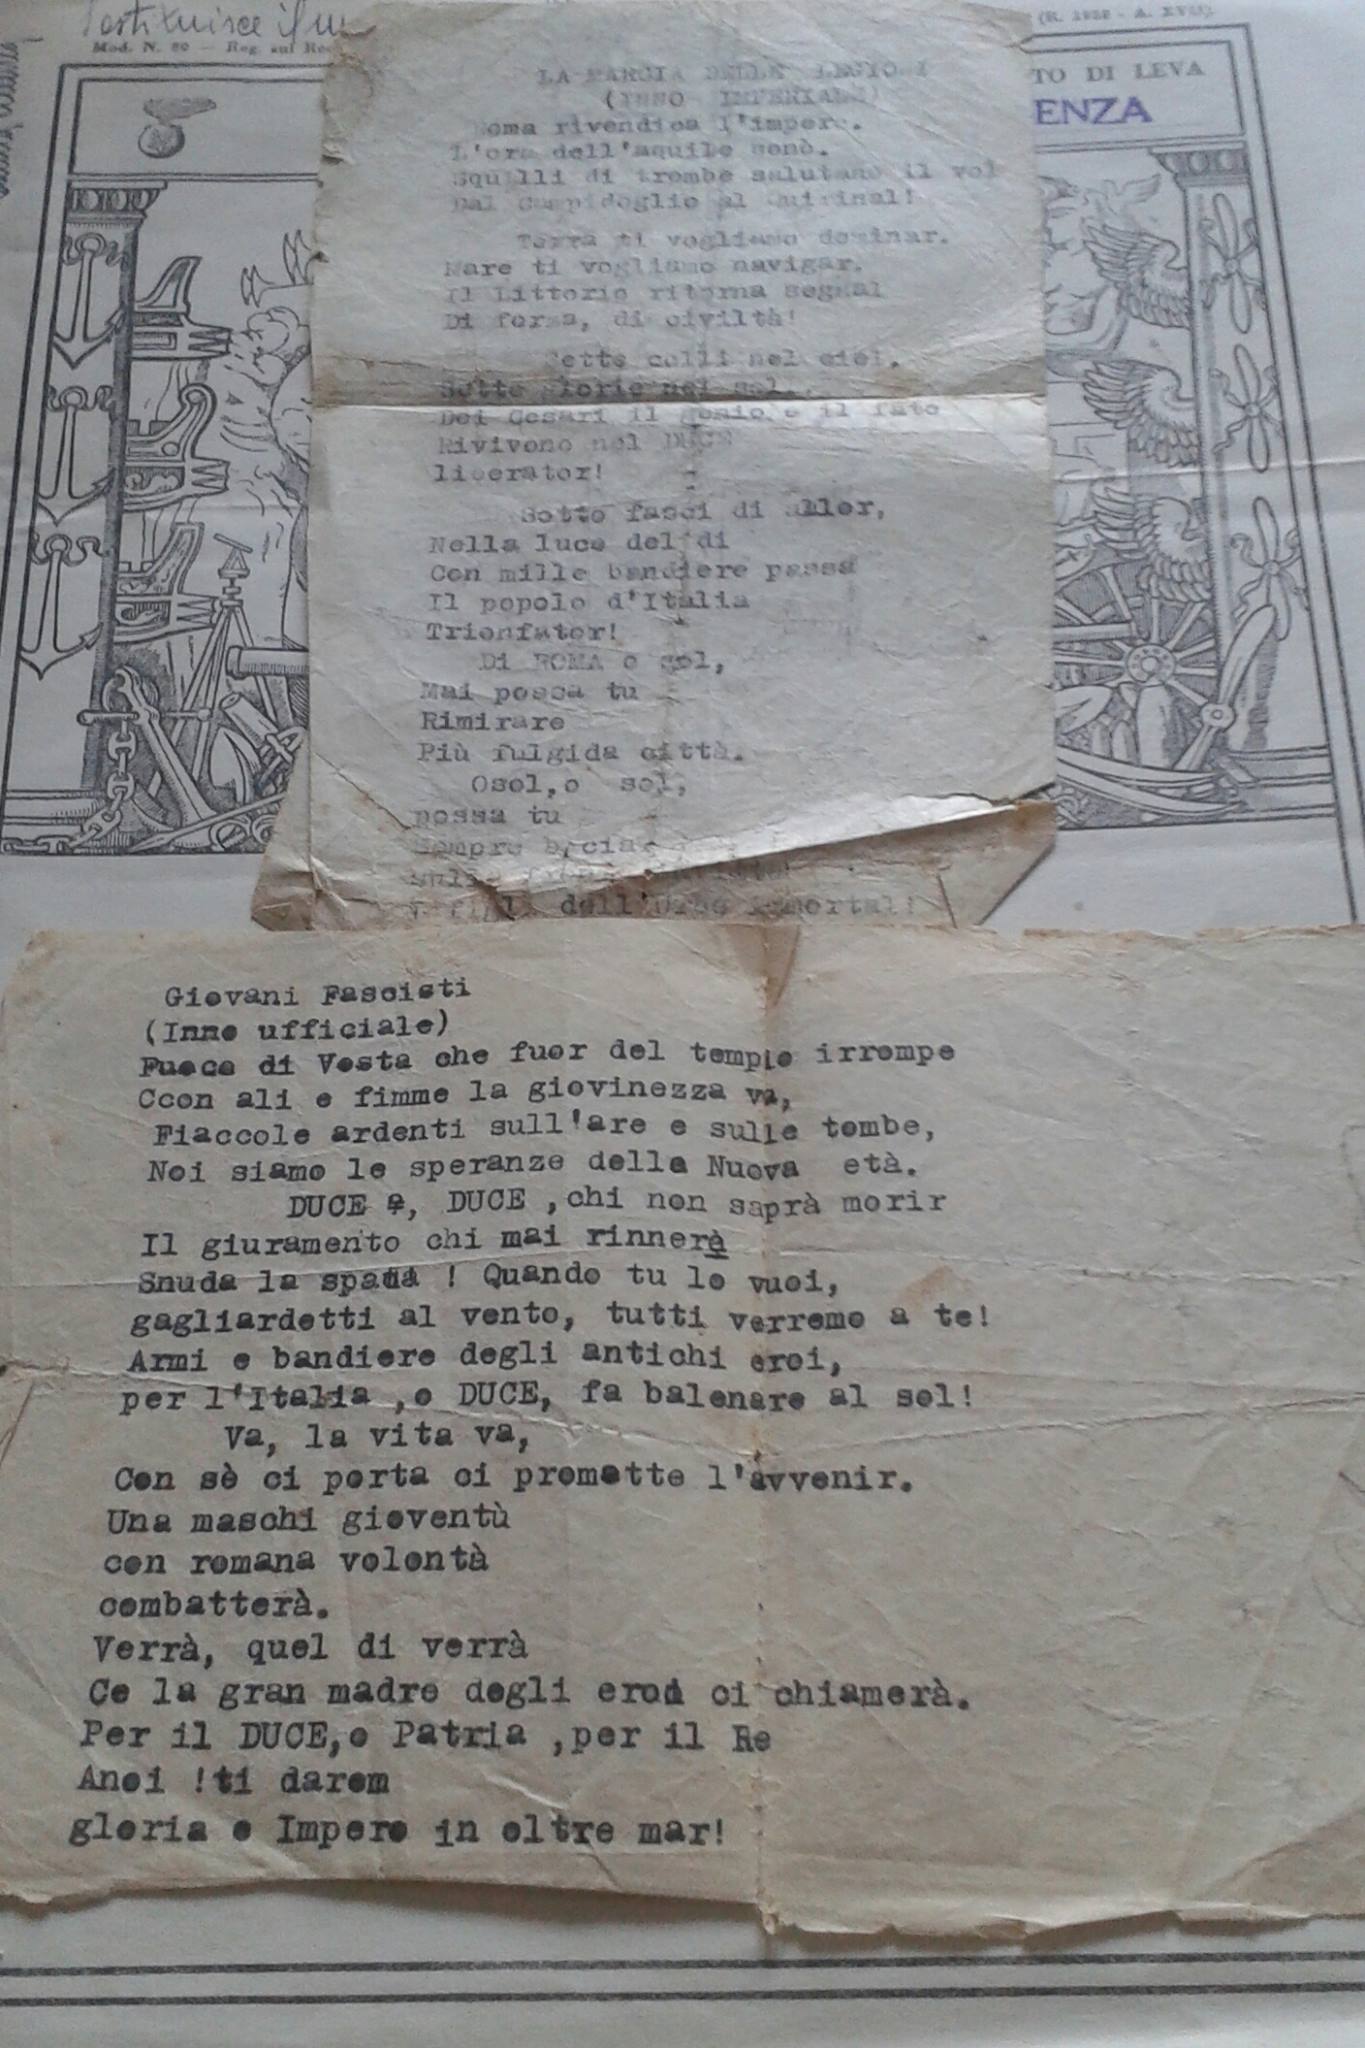 Sostituisce il
Mod. N. 80 — Reg. sul Rec
(R. 1939 - A. XVII)
TO DI LEVA
ENZA
LA MARCIA DELLE LEGIONI
(INNO IMPERIALE)
Roma rivendica l'impero.
L'ora dell'aquile sonò.
Squilli di trombe salutano il vol
Dal Campidoglio al Quirinal!
Terra ti vogliamo dominar.
Mare ti vogliamo navigar.
Il Littorio ritorna segnal
Di forza, di civiltà!
Sette colli nel ciel.
Sette glorie nel sol.
Dei Cesari il genio e il fato
Rivivono nel DUCE
liberator!
Sotto fasci di allor,
Nella luce del di
Con mille bandiere passa
Il popolo d'Italia
Trionfator!
Di ROMA o sol,
Mai possa tu
Rimirare
Più fulgida città.
Osol,o sol,
possa tu
Sempre baciar
sulle
figli dell'Urbe immortal!
Giovani Fascisti
(Inno ufficiale)
Fuoco di Vesta che fuor del tempio irrompe
Ccon ali e fimme la giovinezza va,
Fiaccole ardenti sull'are e sulle tombe,
Noi siamo le speranze della Nuova età.
DUCE , DUCE ,chi non saprà morir
Il giuramento chi mai rinnerà
Snuda la spada ! Quando tu lo vuoi,
gagliardetti al vento, tutti verremo a te!
Armi e bandiere degli antichi eroi,
per l'Italia ,o DUCE, fa balenare al sol!
Va, la vita va,
Con sè ci porta ci promette l'avvenir.
Una maschi gioventù
con romana volontà
combatterà.
Verrà, quel di verrà
Ce la gran madre degli eroi ci chiamerà.
Per il DUCE,o Patria ,per il Re
Anoi !ti darem
gloria e Impero in oltre mar!